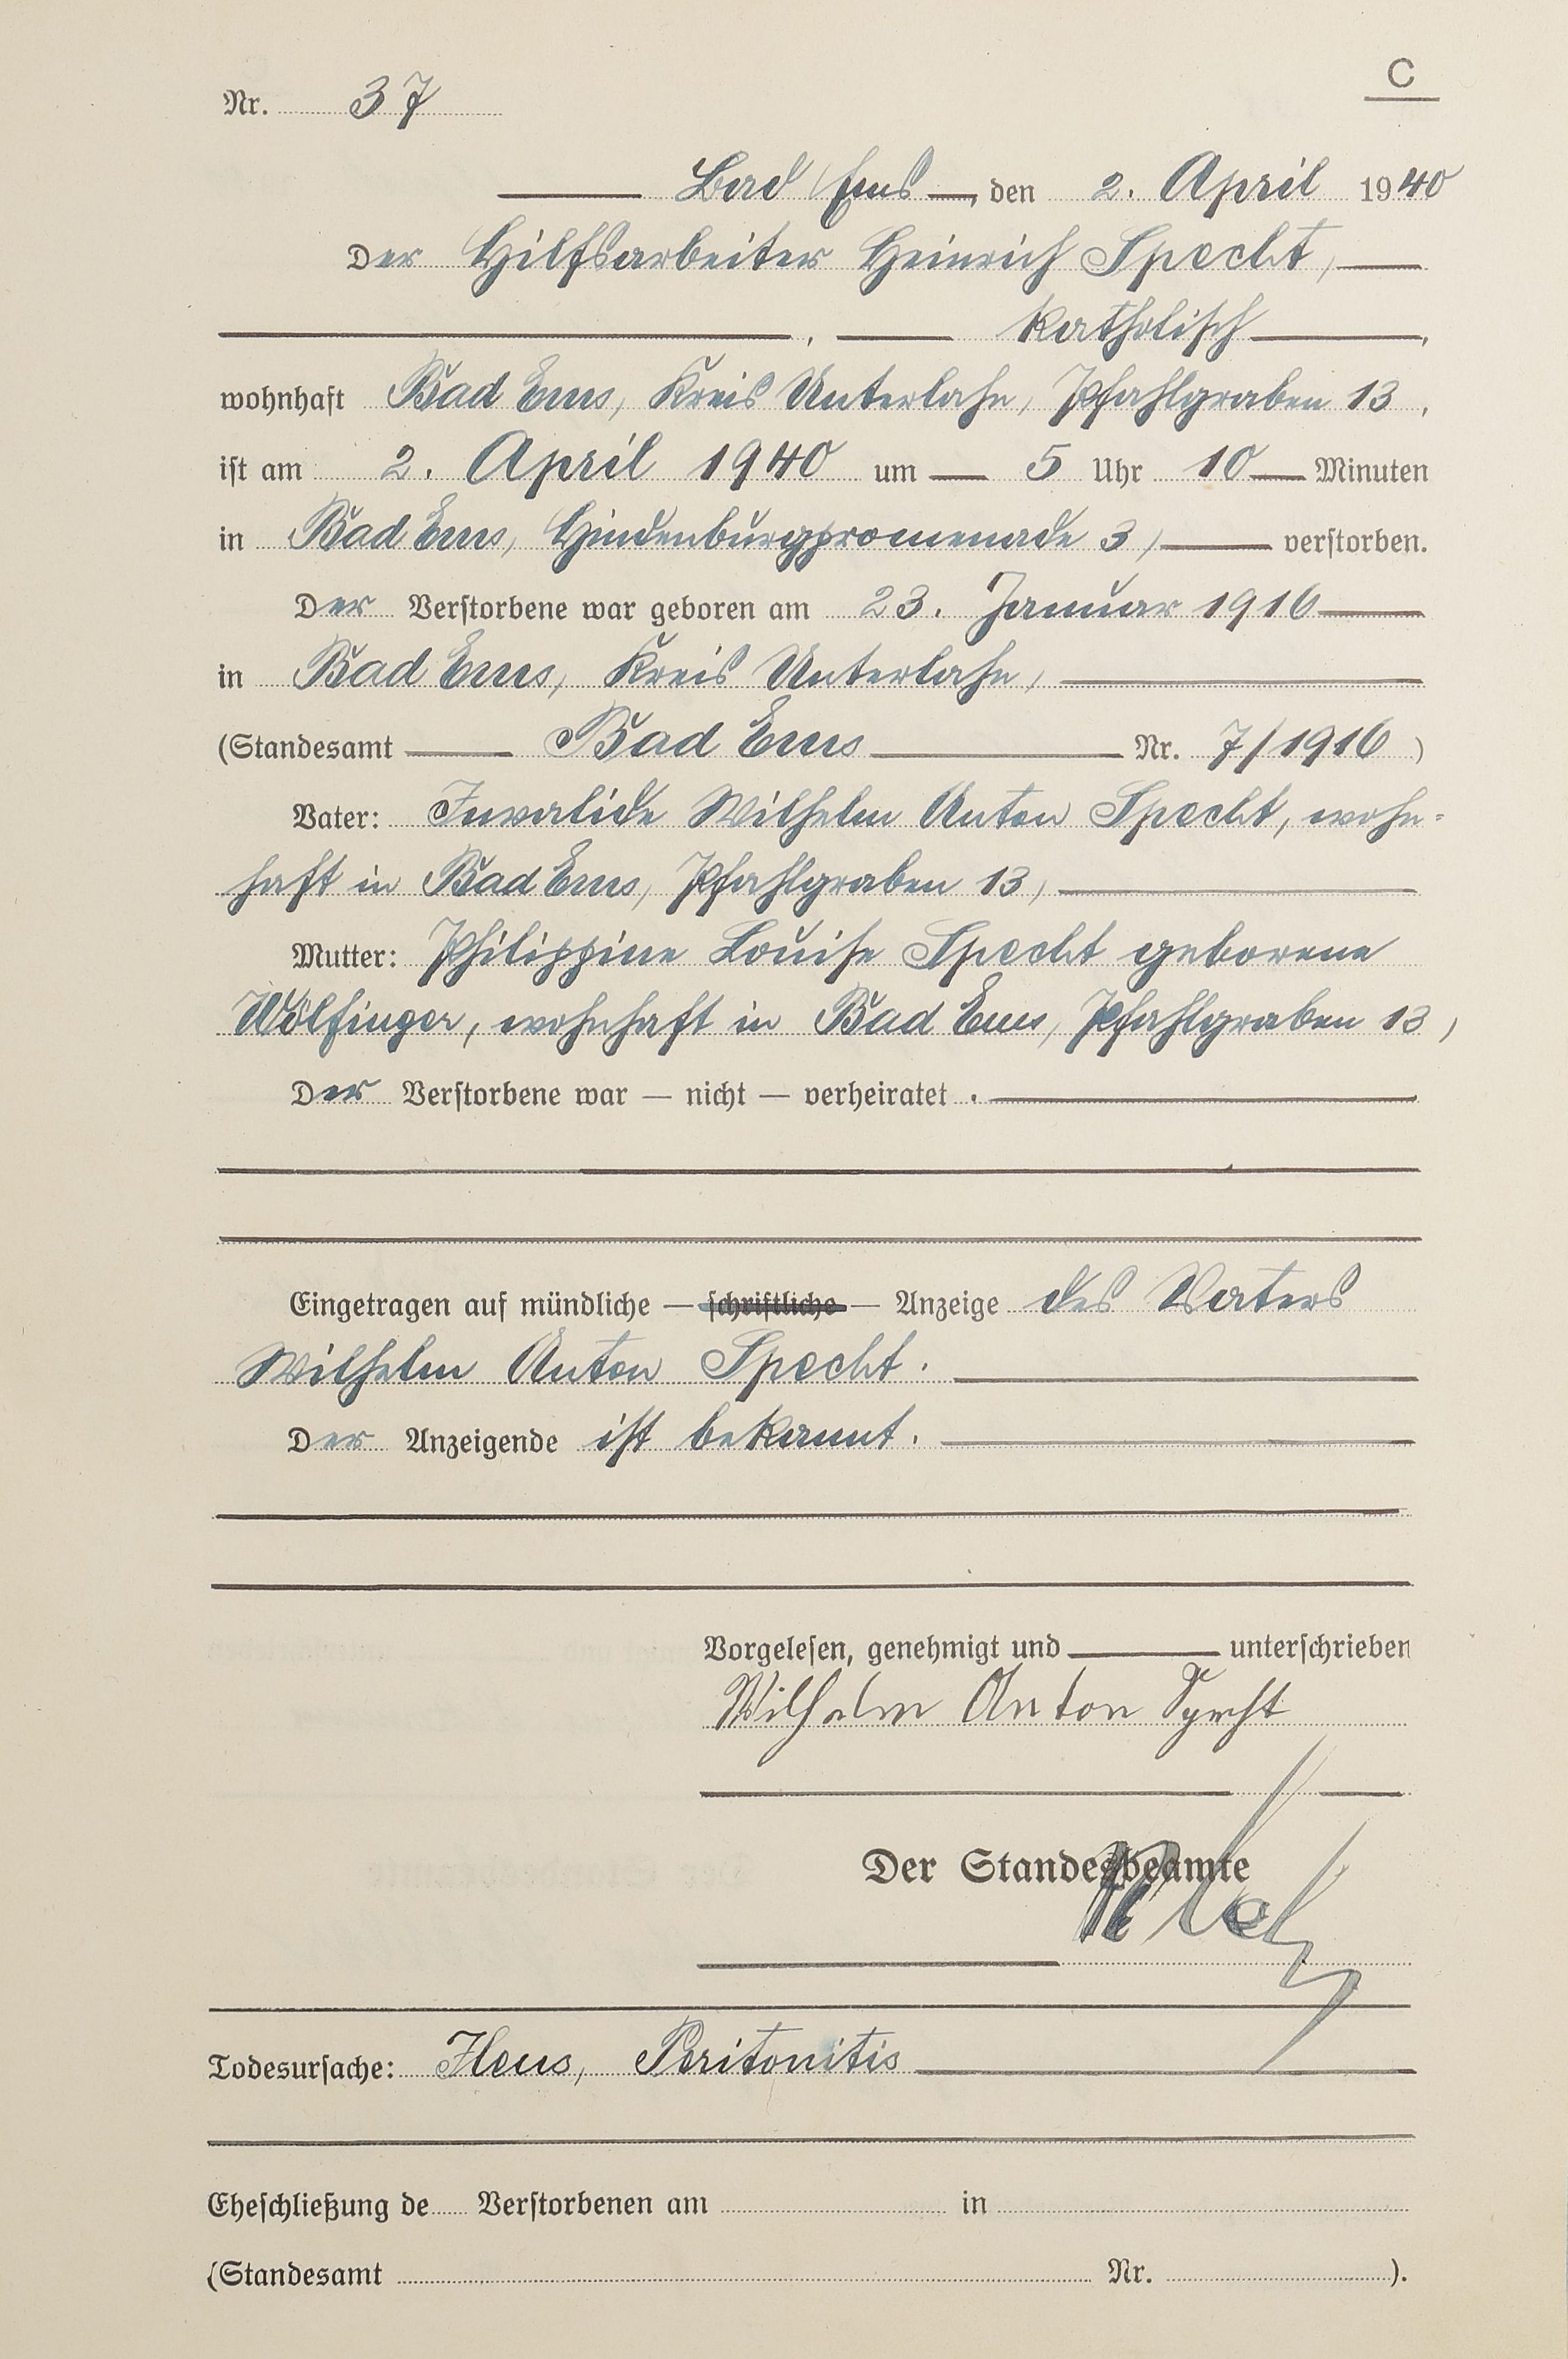 C
Nr. 37
Bad Ems, den 2. April 1940
Der Hilfsarbeiter Heinrich Specht,
, katholisch,
wohnhaft Bad Ems, Kreis Unterlahn, Pfahlgraben 13,
ist am 2. April 1940 um 5 Uhr 10 Minuten
in Bad Ems, Hindenburgpromenade 3, verstorben.
Der Verstorbene war geboren am 23. Januar 1916
in Bad Ems, Kreis Unterlahn,
(Standesamt Bad Ems Nr. 7/1916)
Vater: Invalide Wilhelm Anton Specht, wohn-
haft in Bad Ems, Pfahlgraben 13,
Mutter: Philippine Louise Specht geborene
Wölfinger, wohnhaft in Bad Ems, Pfahlgraben 13,
Der Verstorbene war — nicht — verheiratet.
Eingetragen auf mündliche — schriftliche — Anzeige des Vaters
Wilhelm Anton Specht.
Der Anzeigende ist bekannt.
Vorgelesen, genehmigt und unterschrieben
Wilhelm Anton Specht
Der Standesbeamte
Todesursache: Ileus, Peritonitis
Eheschließung de Verstorbenen am in
(Standesamt Nr. ).